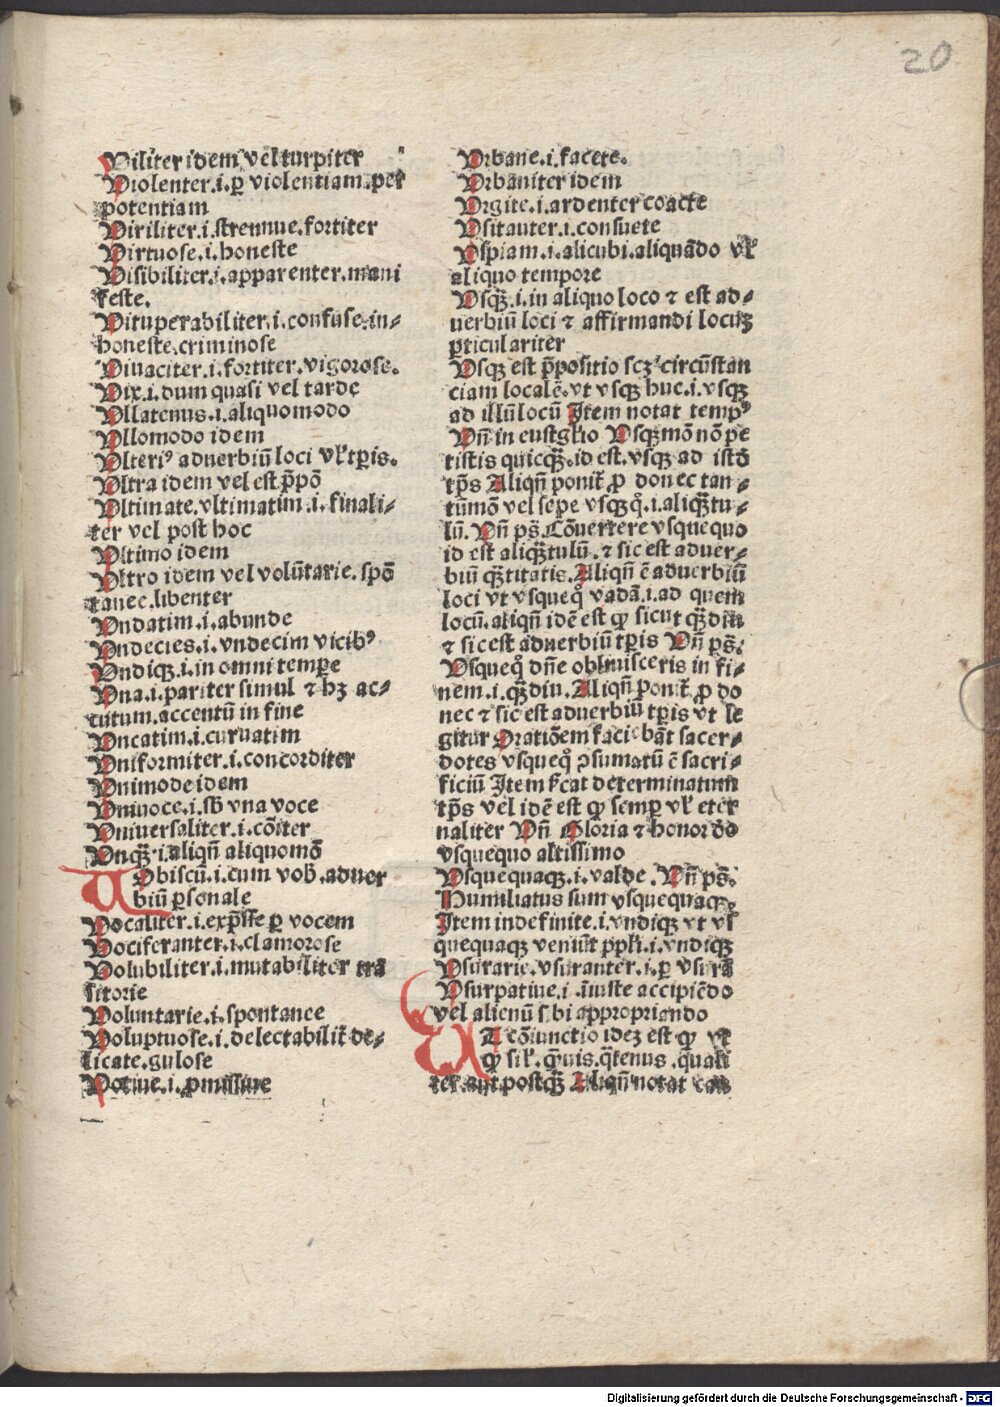 20
Uiliter idem vel turpiter
Uiolenter.i.ꝑ violentiam.per
potentiam
Uiriliter.i.strennue.fortiter
Uirtuose.i.honeste
Uisibiliter.i.apparenter.mani
feste.
Uituperabiliter.i.confuse.in⸗
honeste.criminose
Uiuaciter.i.fortiter.vigorose.
Uix.i.dum quasi vel tarde
Ullatenus.i.aliquomodo
Ullomodo idem
Ulteriꝰ aduerbiū loci vl̓ tꝑis.
Ultra idem vel est p̄pō
Ultimate.vltimatim.i.finali⸗
ter vel post hoc
Ultimo idem
Ultro idem vel volūtarie.spō
tanee.libenter
Undatim.i.abunde
Undecies.i.vndecim vicibꝰ
Undiqꝫ.i.in omni temꝑe
Una.i.pariter simul ⁊ hꝫ ac⸗
cutum.accentū in fine
Uncatim.i.curuatim
Uniformiter.i.concorditer
Unimode idem
Uniuoce.i.sb̄ vna voce
Uniuersaliter.i.cōiter
Unqꝫ̄.i.aliqn̄ aliquomō
Uobiscū.i.cum vob̄.aduer
biū ꝑsonale
Uocaliter.i.exp̄sse ꝑ vocem
Uociferanter.i.clamorose
Uolubiliter.i.mutabiliter trā
sitorie
Uoluntarie.i.spontance
Uoluptuose.i.delectabilit̄ de⸗
licate.gulose
Uotiue.i.ꝓmissiue
Urbane.i.facete.
Urbaniter idem
Urgite.i.ardenter coacte
Usitanter.i.consuete
Uspiam.i.alicubi.aliquādo vl̓
aliquo tempore
Usqꝫ̄.i.in aliquo loco ⁊ est ad⸗
uerbiū loci ⁊ affirmandi locuꝫ
ꝑticulariter
Usqꝫ est p̄positio scꝫ circūstan
ciam localē.vt vsqꝫ huc.i.vsqꝫ
ad illū locū Item notat tempꝰ
Un̄ in euāgl̓io Usqꝫ mō nō pe
tistis quicqꝫ̄.id est.vsqꝫ ad istō
tp̄s Aliqn̄ ponit̄ ꝓ donec tan⸗
tūmō vel sepe vsqꝫ qͦ.i.aliqꝫ̄tu⸗
lū. Un̄ ps̄. Cōuertere vsquequo
id est aliqꝫ̄tulū.⁊ sic est aduer⸗
biū qꝫ̄titatis. Aliqn̄ ē aduerbiū
loci vt vsquequͦ vadā.i.ad quem
locū.aliqn̄ idē est ꝙ sicut qꝫ̄diu
⁊ sic est aduerbiū tꝑis Un̄ ps̄.
Usquequͦ dn̄e obliuisceris in fi⸗
nem.i.qꝫ̄diu. Aliqn̄ ponit̄ ꝓ do
nec ⁊ sic est aduerbiū tꝑis vt le
gitur Oratiōem faciebāt sacer⸗
dotes vsquequͦ ꝯsumatū ē sacri⸗
ficiū Item s̄cat determinatum
tp̄s vel idē est ꝙ semꝑ vl̓ eter
naliter Un̄ Gloria ⁊ honor dō
vsquequo altissimo
Usquequaqꝫ.i.valde. Un̄ ps̄.
Humiliatus sum vsquequaqꝫ
Item indefinite.i.vndiqꝫ vt vs̄
quequaqꝫ veniūt ppl̓i.i.vndiqꝫ
Usurarie.vsuranter.i.ꝑ vsurā
Usurpatiue.i.īiuste accipiēdo
vel alienū sibi appropriando
Ut cōiunctio ideꝫ est ꝙ vt
ꝙ sil̓.qͣuis.qͣtenus.quali
ter.aut postqꝫ̄ Aliqn̄ notat cau
Digitalisierung gefördert durch die Deutsche Forschungsgemeinschaft - DFG